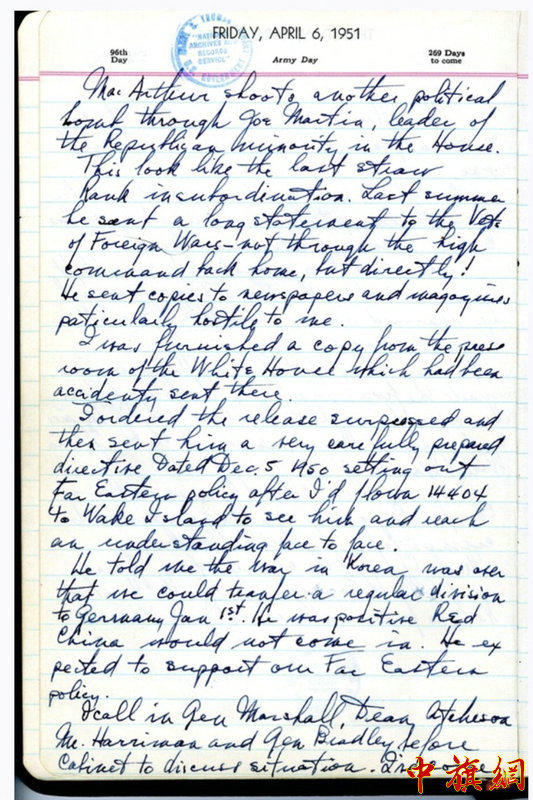 FRIDAY, APRIL 6, 1951
96th
Day
Army Day
269 Days
to come
HARRY S. TRUMAN
"NATIONAL
ARCHIVES AND
RECORDS
SERVICE"
U.S. GOVERNMENT
MacArthur shoots another political
bomb through Joe Martin, leader of
the Republican minority in the House.
This look like the last straw
Rank insubordination. Last summer
he sent a long statement to the Vets
of Foreign Wars - not through the high
command back home, but directly!
He sent copies to newspapers and magazines
particularly hostile to me.
I was furnished a copy from the press
room of the White House which had been
accidenty sent there.
I ordered the release surpressed and
then sent him a very carefully prepared
directive Dated Dec. 5 1950 setting out
Far Eastern policy after I'd flown 14404
to Wake Island to see him and reach
an understanding face to face.
He told me the war in Korea was over
that we could transfer a regular division
to Germany Jan 1st. He was positive Red
China would not come in. He ex
pected to support our Far Eastern
policy.
I call in Gen Marshall, Dean Atcheson
Mr. Harriman and Gen Bradley before
Cabinet to discuss situation.
中旗網